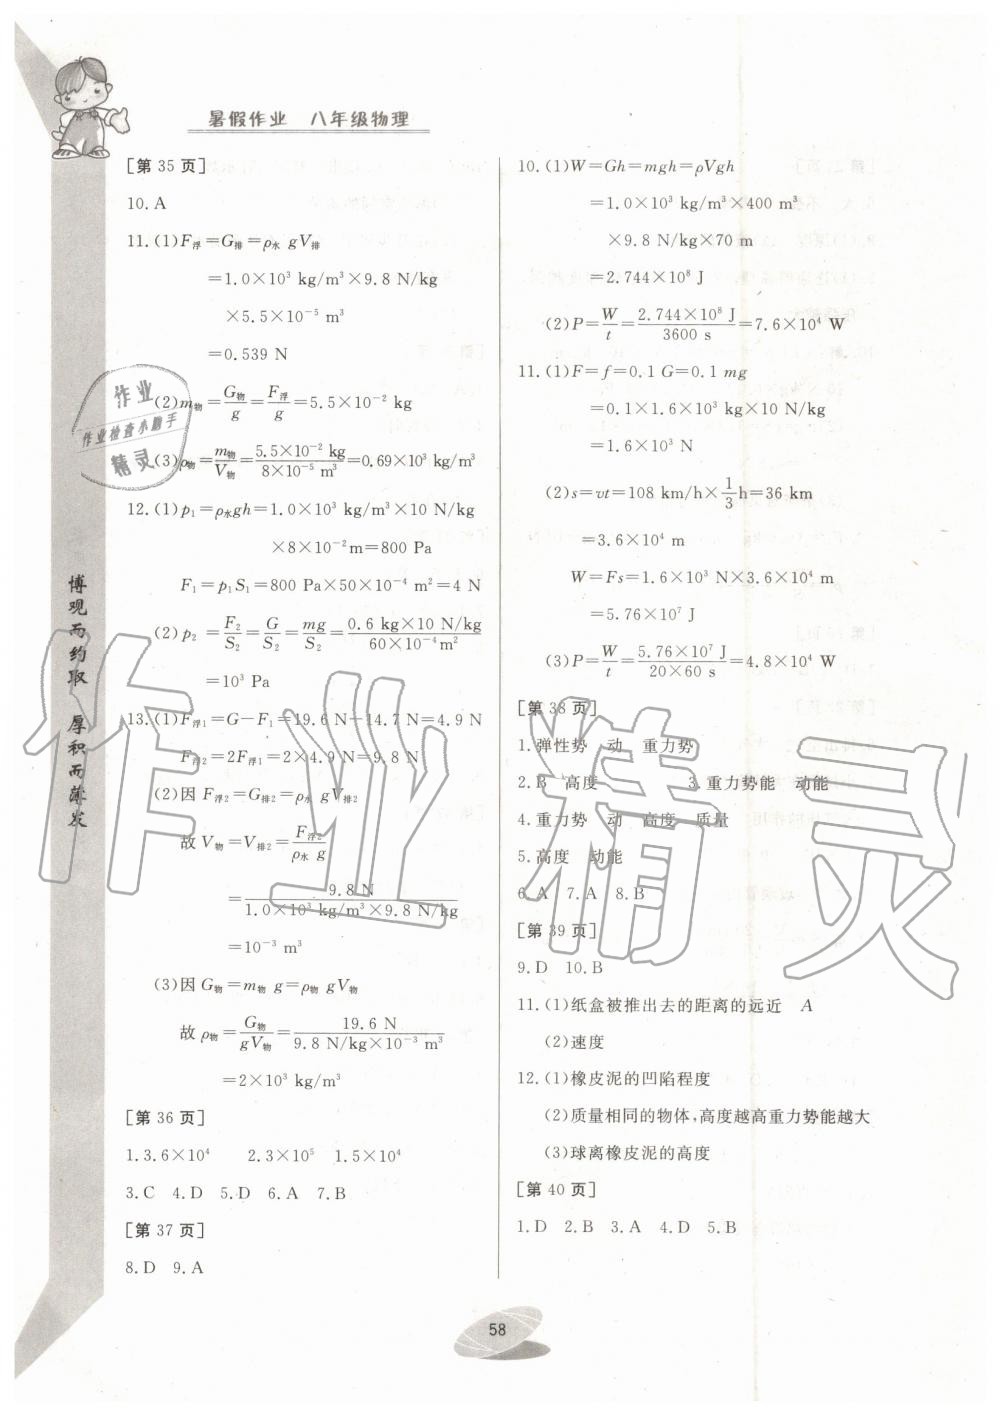 暑假作业 八年级物理
[第 35 页]
10. A
11. (1)F浮=G排=ρ水 gV排
=1.0×10³ kg/m³×9.8 N/kg
×5.5×10⁻⁵ m³
=0.539 N
(2)m物=G物/g=F浮/g=5.5×10⁻² kg
(3)ρ物=m物/V物=5.5×10⁻² kg/8×10⁻⁵ m³=0.69×10³ kg/m³
12. (1)p₁=ρ水gh=1.0×10³ kg/m³×10 N/kg
×8×10⁻²m=800 Pa
F₁=p₁S₁=800 Pa×50×10⁻⁴ m²=4 N
(2)p₂=F₂/S₂=G/S₂=mg/S₂=0.6 kg×10 N/kg/60×10⁻⁴m²
=10³ Pa
13. (1)F浮1=G−F₁=19.6 N−14.7 N=4.9 N
F浮2=2F浮1=2×4.9 N=9.8 N
(2)因 F浮2=G排2=ρ水 gV排2
故 V物=V排2=F浮2/ρ水 g
=9.8 N/1.0×10³ kg/m³×9.8 N/kg
=10⁻³ m³
(3)因 G物=m物 g=ρ物 gV物
故 ρ物=G物/gV物=19.6 N/9.8 N/kg×10⁻³ m³
=2×10³ kg/m³
[第 36 页]
1. 3.6×10⁴ 2. 3×10⁵ 1.5×10⁴
3. C 4. D 5. D 6. A 7. B
[第 37 页]
8. D 9. A
10. (1)W=Gh=mgh=ρVgh
=1.0×10³ kg/m³×400 m³
×9.8 N/kg×70 m
=2.744×10⁸ J
(2)P=W/t=2.744×10⁸ J/3600 s=7.6×10⁴ W
11. (1)F=f=0.1 G=0.1 mg
=0.1×1.6×10³ kg×10 N/kg
=1.6×10³ N
(2)s=vt=108 km/h×1/3h=36 km
=3.6×10⁴ m
W=Fs=1.6×10³ N×3.6×10⁴ m
=5.76×10⁷ J
(3)P=W/t=5.76×10⁷ J/20×60 s=4.8×10⁴ W
[第 38 页]
1. 弹性势 动 重力势
2. B 高度 3. 重力势能 动能
4. 重力势 动 高度 质量
5. 高度 动能
6. A 7. A 8. B
[第 39 页]
9. D 10. B
11. (1)纸盒被推出去的距离的远近 A
(2)速度
12. (1)橡皮泥的凹陷程度
(2)质量相同的物体,高度越高重力势能越大
(3)球离橡皮泥的高度
[第 40 页]
1. D 2. B 3. A 4. D 5. B
博观而约取 厚积而薄发
作业
作业检查小助手
精灵
作业精灵
58